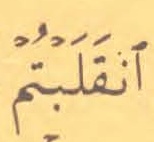 ٱنقَلَبۡتُمۡ